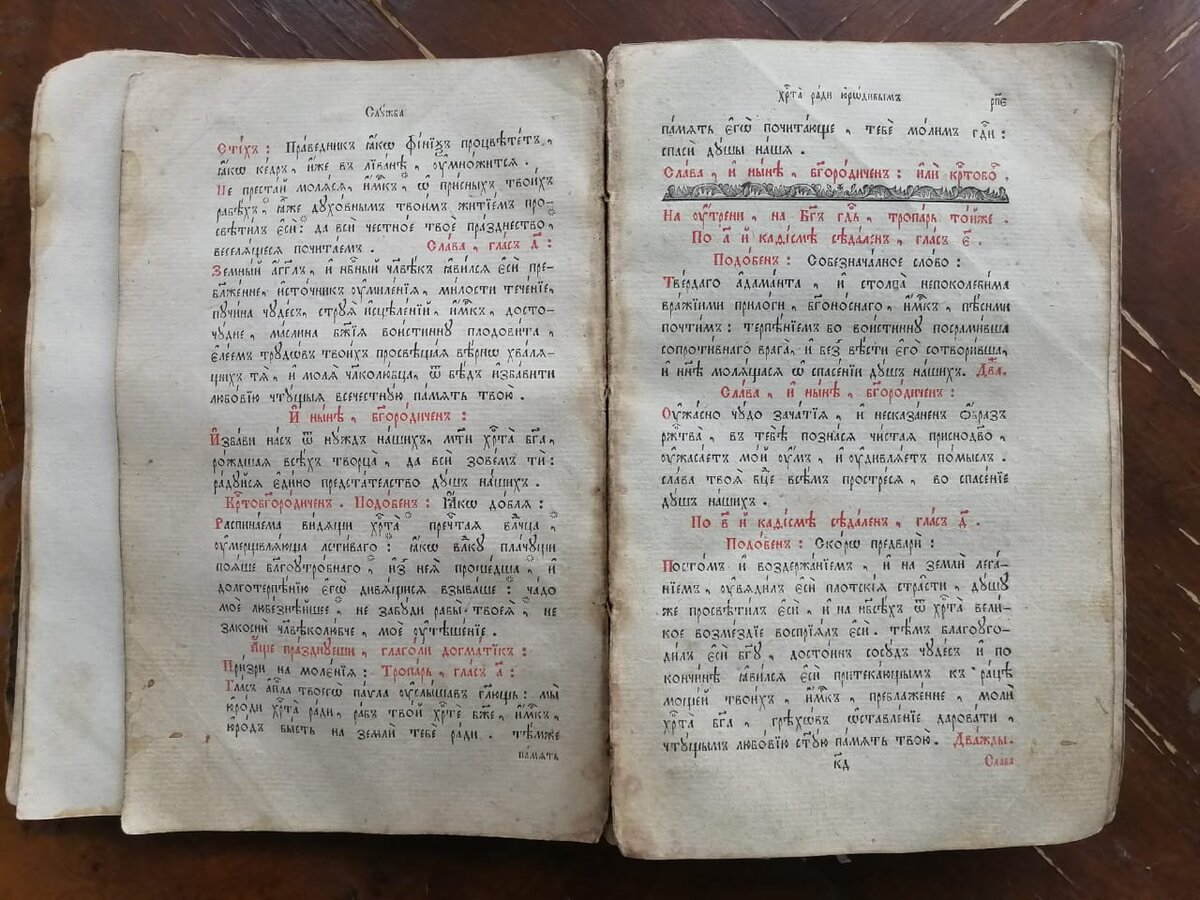 Слꙋ́жба
Сті́хъ : Пра́ведникъ ꙗ҆́кѡ фі́нїѯъ процвѣте́тъ ,
ꙗ҆́кѡ ке́дръ , и҆́же въ лїва́нѣ , ᲂу҆мно́жится .
Не преста́й моля́ся , и҆́мк҃ъ , ѡ҆ при́сныхъ твои́хъ
рабѣ́хъ * ꙗ҆̀же дꙋхо́внымъ твои́мъ житїе́мъ про-
свѣти́лъ є҆сѝ : да всѝ че́стное твоѐ пра́зднество ,
веселя́щеся почита́емъ . Сла́ва , гла́съ д҃ :
Земны́й а҆́гг҃лъ , и҆ нб҃ный чл҃вѣ́къ ꙗ҆ви́лся є҆сѝ пре-
бл҃же́нне , и҆сто́чникъ ᲂу҆миле́нїя , ми́лости тече́нїе ,
пꙋчи́на чꙋде́съ , стрꙋѧ̀ и҆сцѣле́нїй , и҆́мк҃ъ , досто-
чꙋ́дне , ма́слина бж҃їѧ вои́стиннꙋ плодови́та ,
є҆ле́емъ трꙋдѡ́въ твои́хъ просвѣща́я вѣ́рнѡ хва́ля-
щихъ тѧ̀ , и҆ молѧ̀ чл҃колю́бца , ѿ бѣ́дъ и҆зба́вити
любо́вїю чтꙋ́щыя всече́стнꙋю па́мять твою̀ .
И҆ ны́нѣ , бг҃оро́диченъ :
И҆зба́ви на́съ ѿ нꙋ́ждъ на́шихъ , мт҃и хрⷭ҇та̀ бг҃а ,
ро́ждшая всѣ́хъ творца̀ , да всѝ зове́мъ тѝ :
ра́дꙋйся є҆ди́но предста́тельство дꙋ́шъ на́шихъ .
Крⷭ҇тобг҃оро́диченъ . Подо́бенъ : Ꙗ҆́кѡ до́бля :
Распина́ема ви́дящи хрⷭ҇та̀ * пречⷭ҇тая влⷣчца ,
ᲂу҆мерщвля́юща льсти́ваго : ꙗ҆́кѡ влⷣкꙋ пла́чꙋщи
поя́ше бл҃гоꙋтро́бнаго , и҆з̾ нея̀ проше́дша * и҆
долготерпѣ́нїю є҆гѡ̀ дивя́щися взыва́ше : ча́до
моѐ любе́знѣйшее * не забꙋ́ди рабы̀ твоея̀ , не
закоснѝ чл҃вѣколю́бче , моѐ ᲂу҆тѣше́нїе .
А҆́ще пра́зднꙋеши , глаго́ли догма́тїкъ :
При́зри на моле́нїя : Тропа́рь , гла́съ а҃ :
Гла́съ а҆пⷭ҇ла твоегѡ̀ па́ѵла ᲂу҆слы́шавъ гл҃ющь : мы̀
ю҆ро́ди хрⷭ҇та̀ ра́ди , ра́бъ тво́й хрⷭ҇тѐ бж҃е , и҆́мк҃ъ ,
ю҆ро́дъ бы́сть на землѝ тебѐ ра́ди . тѣ́мже
па́мять
хрⷭ҇та̀ ра́ди ю҆ро́дивымъ
рп҃є
па́мять є҆гѡ̀ почита́юще , тебѐ мо́лимъ гдⷭ҇и :
спасѝ дꙋ́шы на́шѧ .
Сла́ва , и҆ ны́нѣ , бг҃оро́диченъ : и҆лѝ крⷭ҇тово .
На ᲂу҆́трени , на Бг҃ъ гдⷭ҇ь , тропа́рь то́йже .
По а҃ й каѳі́смѣ сѣда́ленъ , гла́съ є҃ .
Подо́бенъ : Собезнача́лное сло́во :
Тве́рдаго а҆дама́нта , и҆ столпа̀ непоколеби́ма
вра́жїими прило́ги , бг҃оно́снаго , и҆́мк҃ъ , пѣ́сньми
почти́мъ : терпѣ́нїемъ бо вои́стиннꙋ посрами́вша
сопроти́внаго врага̀ , и҆ без̾ вѣ́сти є҆го̀ сотвори́вша ,
и҆ нн҃ѣ моля́щася ѡ҆ спасе́нїи дꙋ́шъ на́шихъ . Два́ .
Сла́ва , и҆ ны́нѣ , бг҃оро́диченъ :
Оу҆жа́сно чꙋ́до зача́тїя , и҆ несказа́ненъ ѻ҆́бразъ
ржⷭ҇тва̀ , въ тебѣ̀ позна́ся чи́стая присноде́во ,
ᲂу҆жаса́етъ мо́й ᲂу҆́мъ , и҆ ᲂу҆дивля́етъ по́мыслъ .
сла́ва твоя̀ бц҃е всѣ́мъ простре́ся , во спасе́нїе
дꙋ́шъ на́шихъ .
По в҃ й каѳі́смѣ сѣда́ленъ , гла́съ д҃ .
Подо́бенъ : Ско́рѡ предварѝ :
Посто́мъ и҆ воздержа́нїемъ , и҆ на землѝ лега́-
нїемъ , ᲂу҆вяди́лъ є҆сѝ плотскі́я стра́сти , дꙋ́шꙋ
же просвѣти́лъ є҆сѝ , и҆ на нб҃сѣ́хъ ѿ хрⷭ҇та̀ вели́-
кое возме́здїе воспрїя́лъ є҆сѝ . тѣ́мъ благоꙋго-
ди́лъ є҆сѝ бг҃ꙋ , досто́инъ сосꙋ́дъ чꙋде́съ и҆ по
кончи́нѣ ꙗ҆ви́лся є҆сѝ притека́ющымъ къ ра́цѣ
моще́й твои́хъ , и҆́мк҃ъ , преблаже́нне , молѝ
хрⷭ҇та̀ бг҃а , грѣхѡ́въ ѡ҆ставле́нїе дарова́ти ,
чтꙋ́щымъ любо́вїю ст҃ꙋ́ю па́мять твою̀ . Два́жды .
к҃д Сла́ва